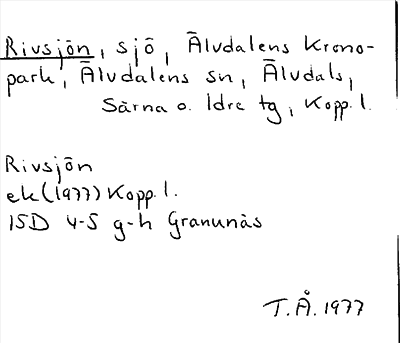 Rivsjön, sjö, Älvdalens krono-
park, Älvdalens sn, Älvdals,
Särna o. Idre tg, Kopp. l.
Rivsjön
ek (1977) Kopp. l.
15D 4-5 g-h Granunäs
T.Å. 1977